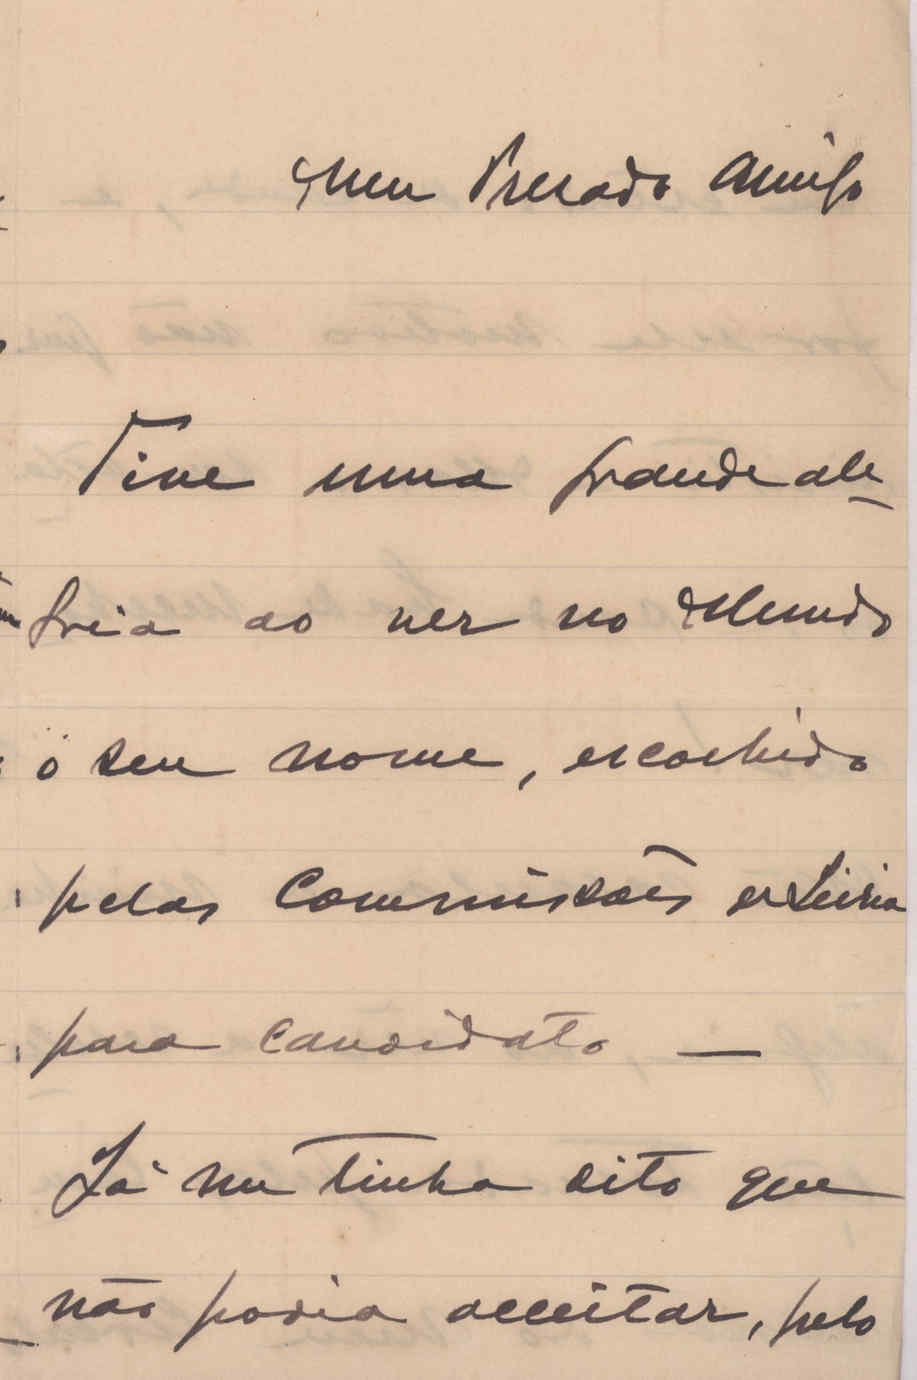 Meu Presado Amigo
Tive uma grande ale-
gria ao ver no Mundo
o seu nome, escolhido
pelas Commissões de Leiria
para candidato —
Já me tinha dito que
não podia acceitar, pelo